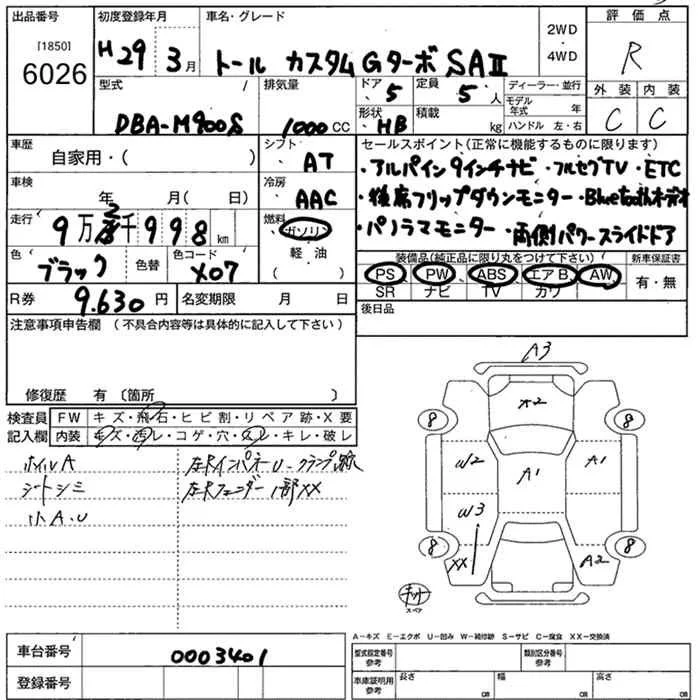 出品番号
[1850]
6026
初度登録年月
H29年3月
車名・グレード
トール カスタムGターボSAⅡ
2WD
・
4WD
評価点
R
外装 内装
C C
型式
DBA-M900S
排気量
1000CC
ドア 5
形状 HB
定員 5人
積載 kg
ディーラー・並行
モデル年式 年
ハンドル 左・右
車歴
自家用・( )
シフト AT
車検
年 月( 日)
冷房 AAC
走行 9万2千998km
燃料 ガソリン
軽油
( )
色 ブラック
色替
色コード X07
R券 9.630円
名変期限 月 日
セールスポイント(正常に機能するものに限ります)
・アルパイン9インチナビ・フルセグTV・ETC
・後席フリップダウンモニター・Bluetoothオーデオ
・パノラマモニター・両側パワースライドドア
装備品(純正品に限り丸をつけて下さい)
PS PW ABS エアB AW
SR ナビ TV カワ
新車保証書
有・無
後日品
注意事項申告欄(不具合内容等は具体的に記入して下さい)
修復歴 有〔箇所 〕
検査員
記入欄
FW キズ・飛石・ヒビ割・リペア跡・X要
内装 キズ・汚レ・コゲ・穴・スレ・キレ・破レ
ホイルA
シートシミ
小A.U
左Fインパネ U・クランプ跡
左Fフェンダー 1部XX
A3
A2
8 8
W2 A1 A1
W3
8 8
XX A2
スペア
A−キズ E−エクボ U−凹み W−補修跡 S−サビ C−腐食 XX−交換済
車台番号 0003401
登録番号
型式指定番号
参考
類別区分番号
参考
車庫証明用
参考
長さ cm
幅 cm
高さ cm